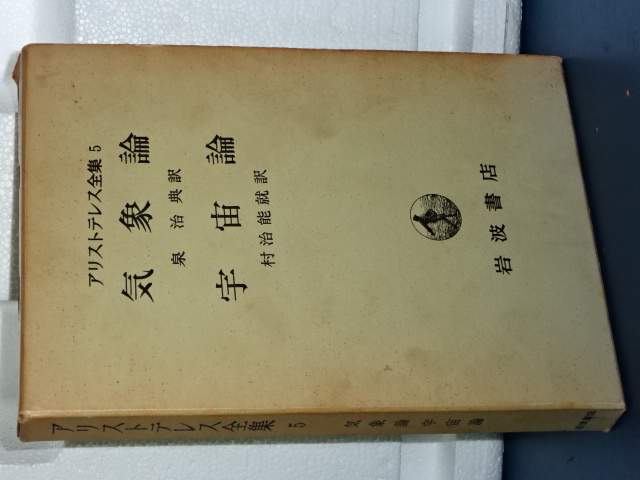 アリストテレス全集 5
気象論
泉 治典訳
宇宙論
村治能就訳
岩波書店
アリストテレス全集 5 気象論 宇宙論